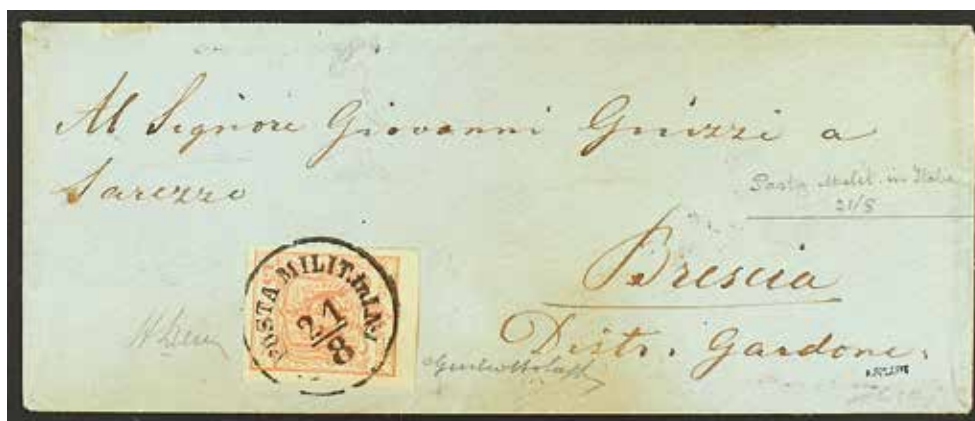 Al Signore Giovanni Guizzi a
Sarezzo
Posta Milit. in Italia
21/8
Brescia
Distr. Gardone.
POSTA MILIT. in I.
21/8